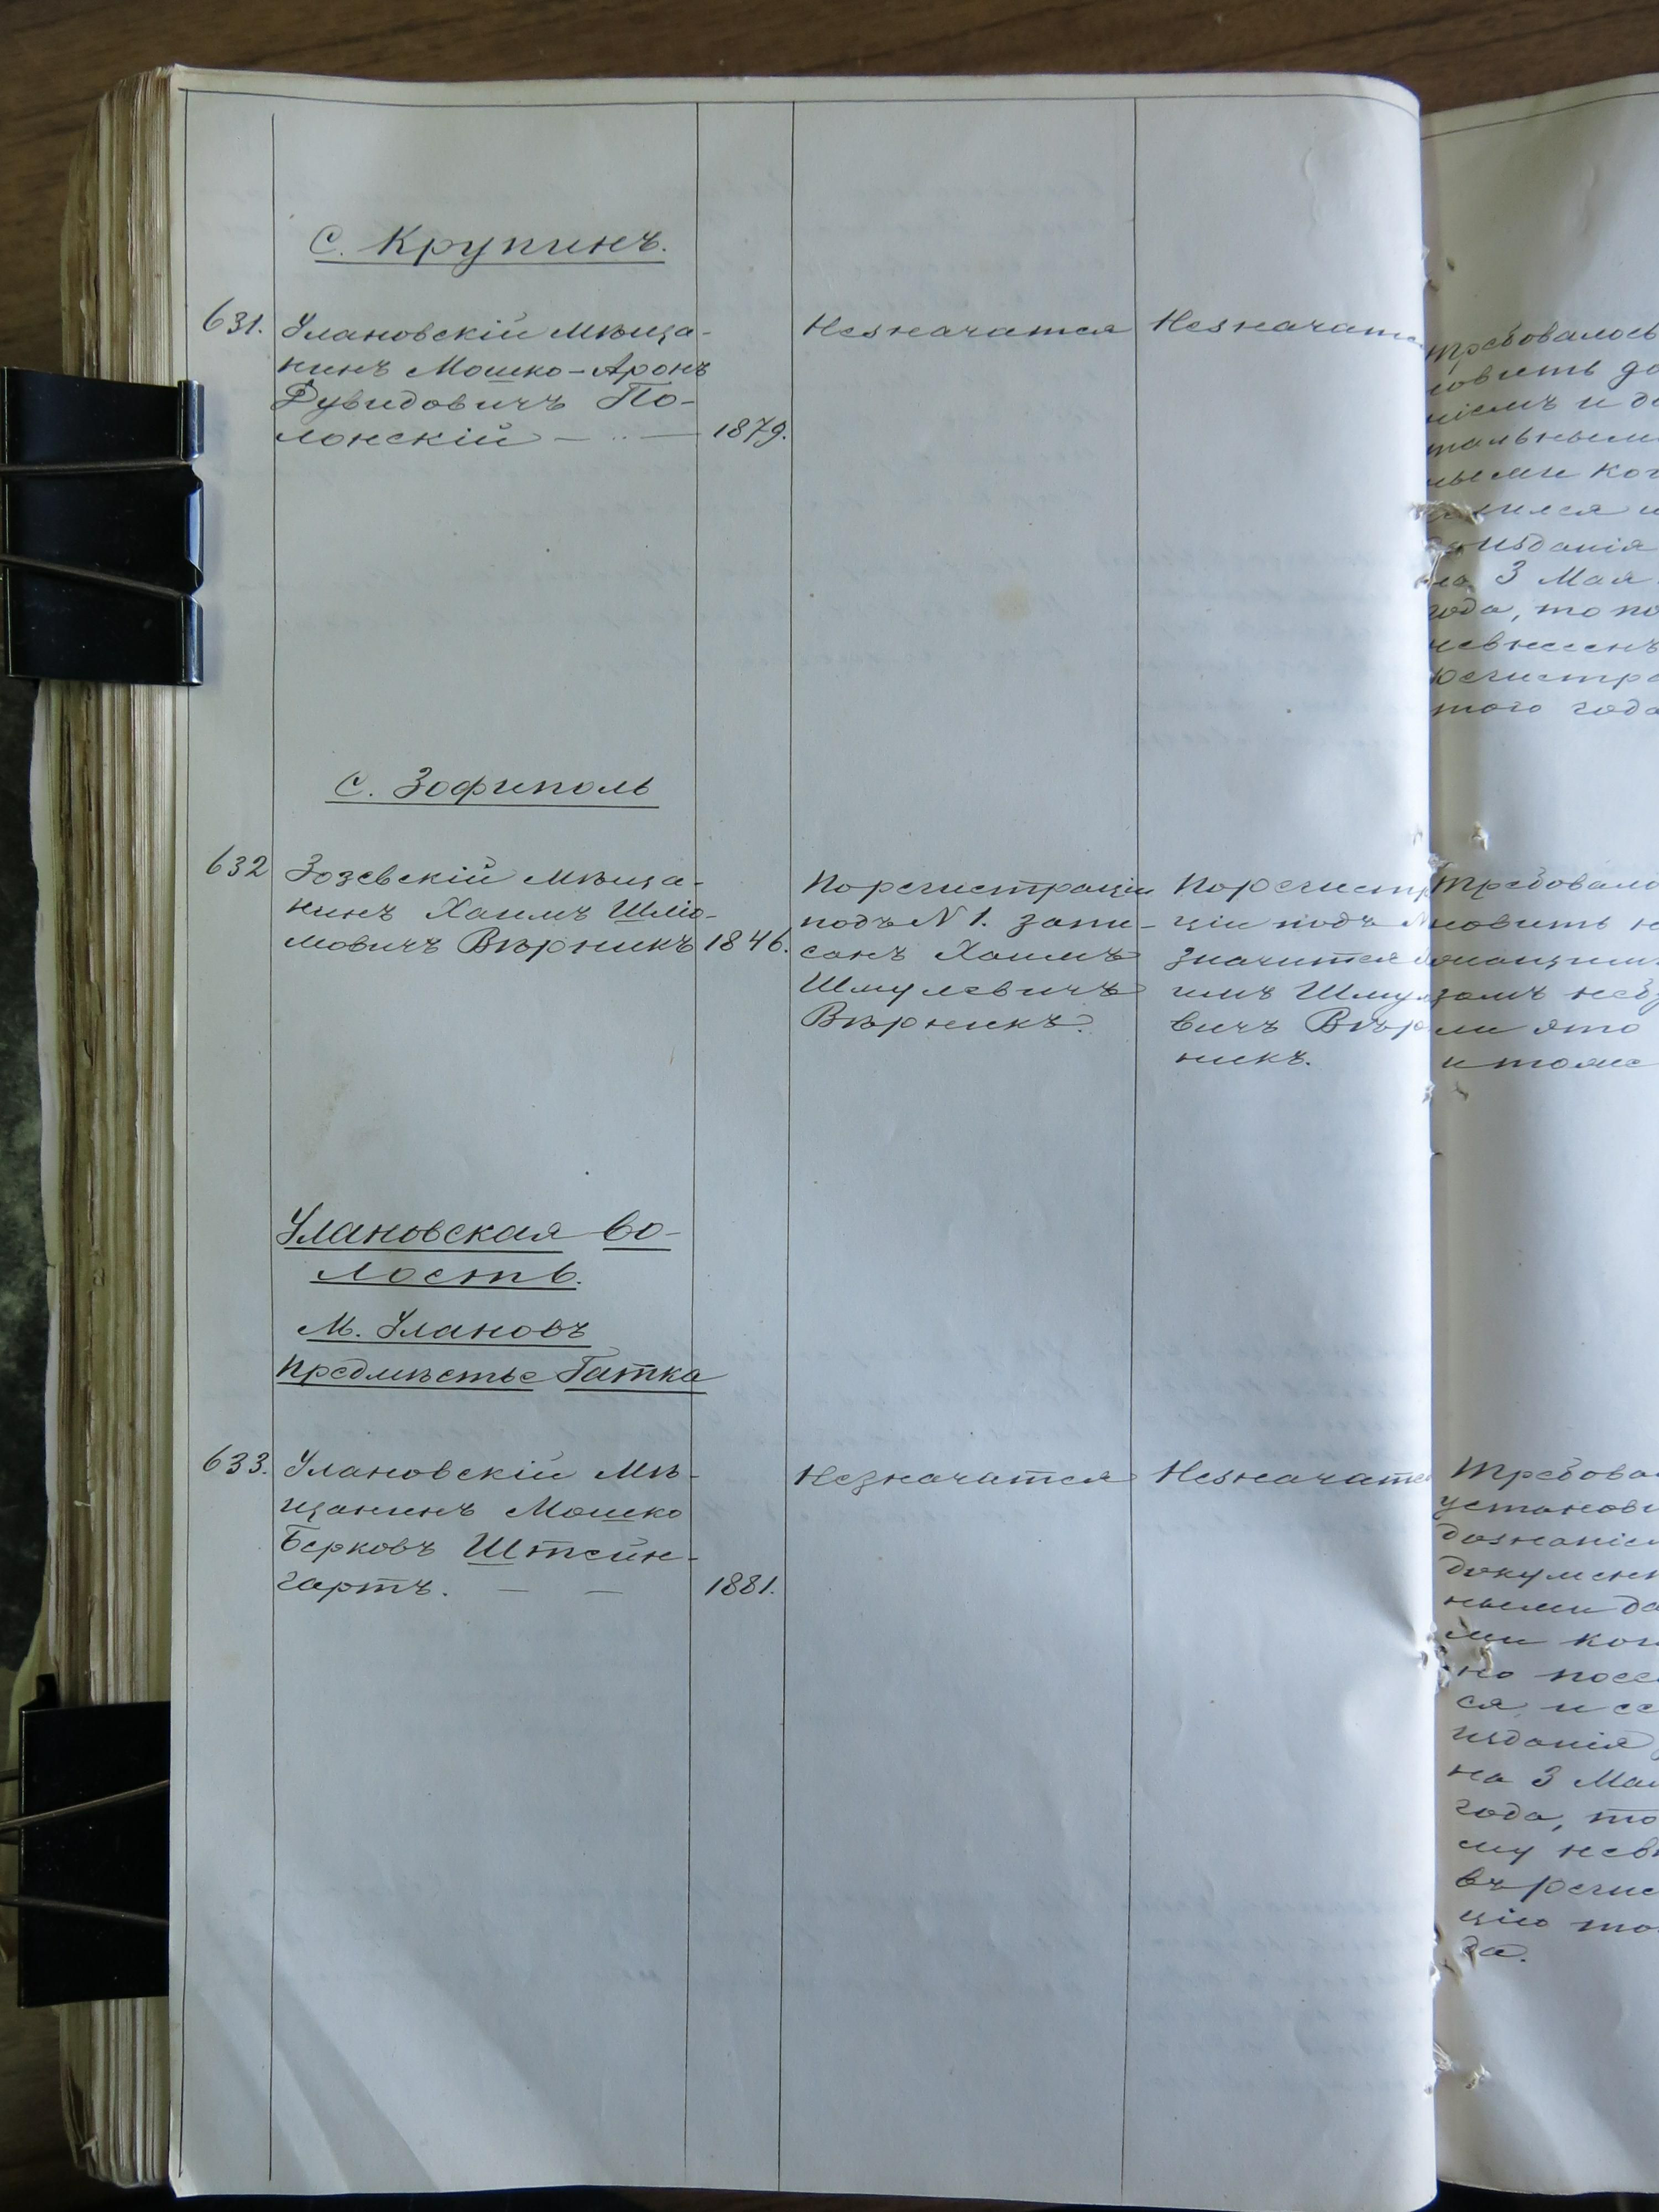 С. Крупинъ.
631. Улановскій мѣща-
нинъ Мошко-Аронъ
Дувидовичъ По-
лонскій — 1879.
Незначатся
Незначатс
требовалось
новить до
ніемъ и до
тальными
ными ког
селился и
до изданія
на 3 Мая
года, то по
невнесенъ
регистра
того года
С. Зофиполь
632 Зозевскій мѣща-
нинъ Хаимъ Шліо-
мовичъ Вѣрникъ 1846.
По регистраціи
подъ N 1. запи-
санъ Хаимъ
Шмулевичъ
Вѣрникъ.
По регистр
ціи подъ N
значится
имъ Шмул
вичъ Вѣр
никъ.
требовало
новить
ли это
и тоже
Улановская во-
лость.
М. Улановъ
Предмѣстье Гатка
633. Улановскій мѣ-
щанинъ Мошко
Берковъ Штейн-
гартъ. — — 1881.
Незначатся
Незначатс
требова
установи
дознаніе
докумен
ными да
ми ког
но посе
ся и се
изданія
на 3 Мая
года, то
му невн
въ регис
цію то
да.